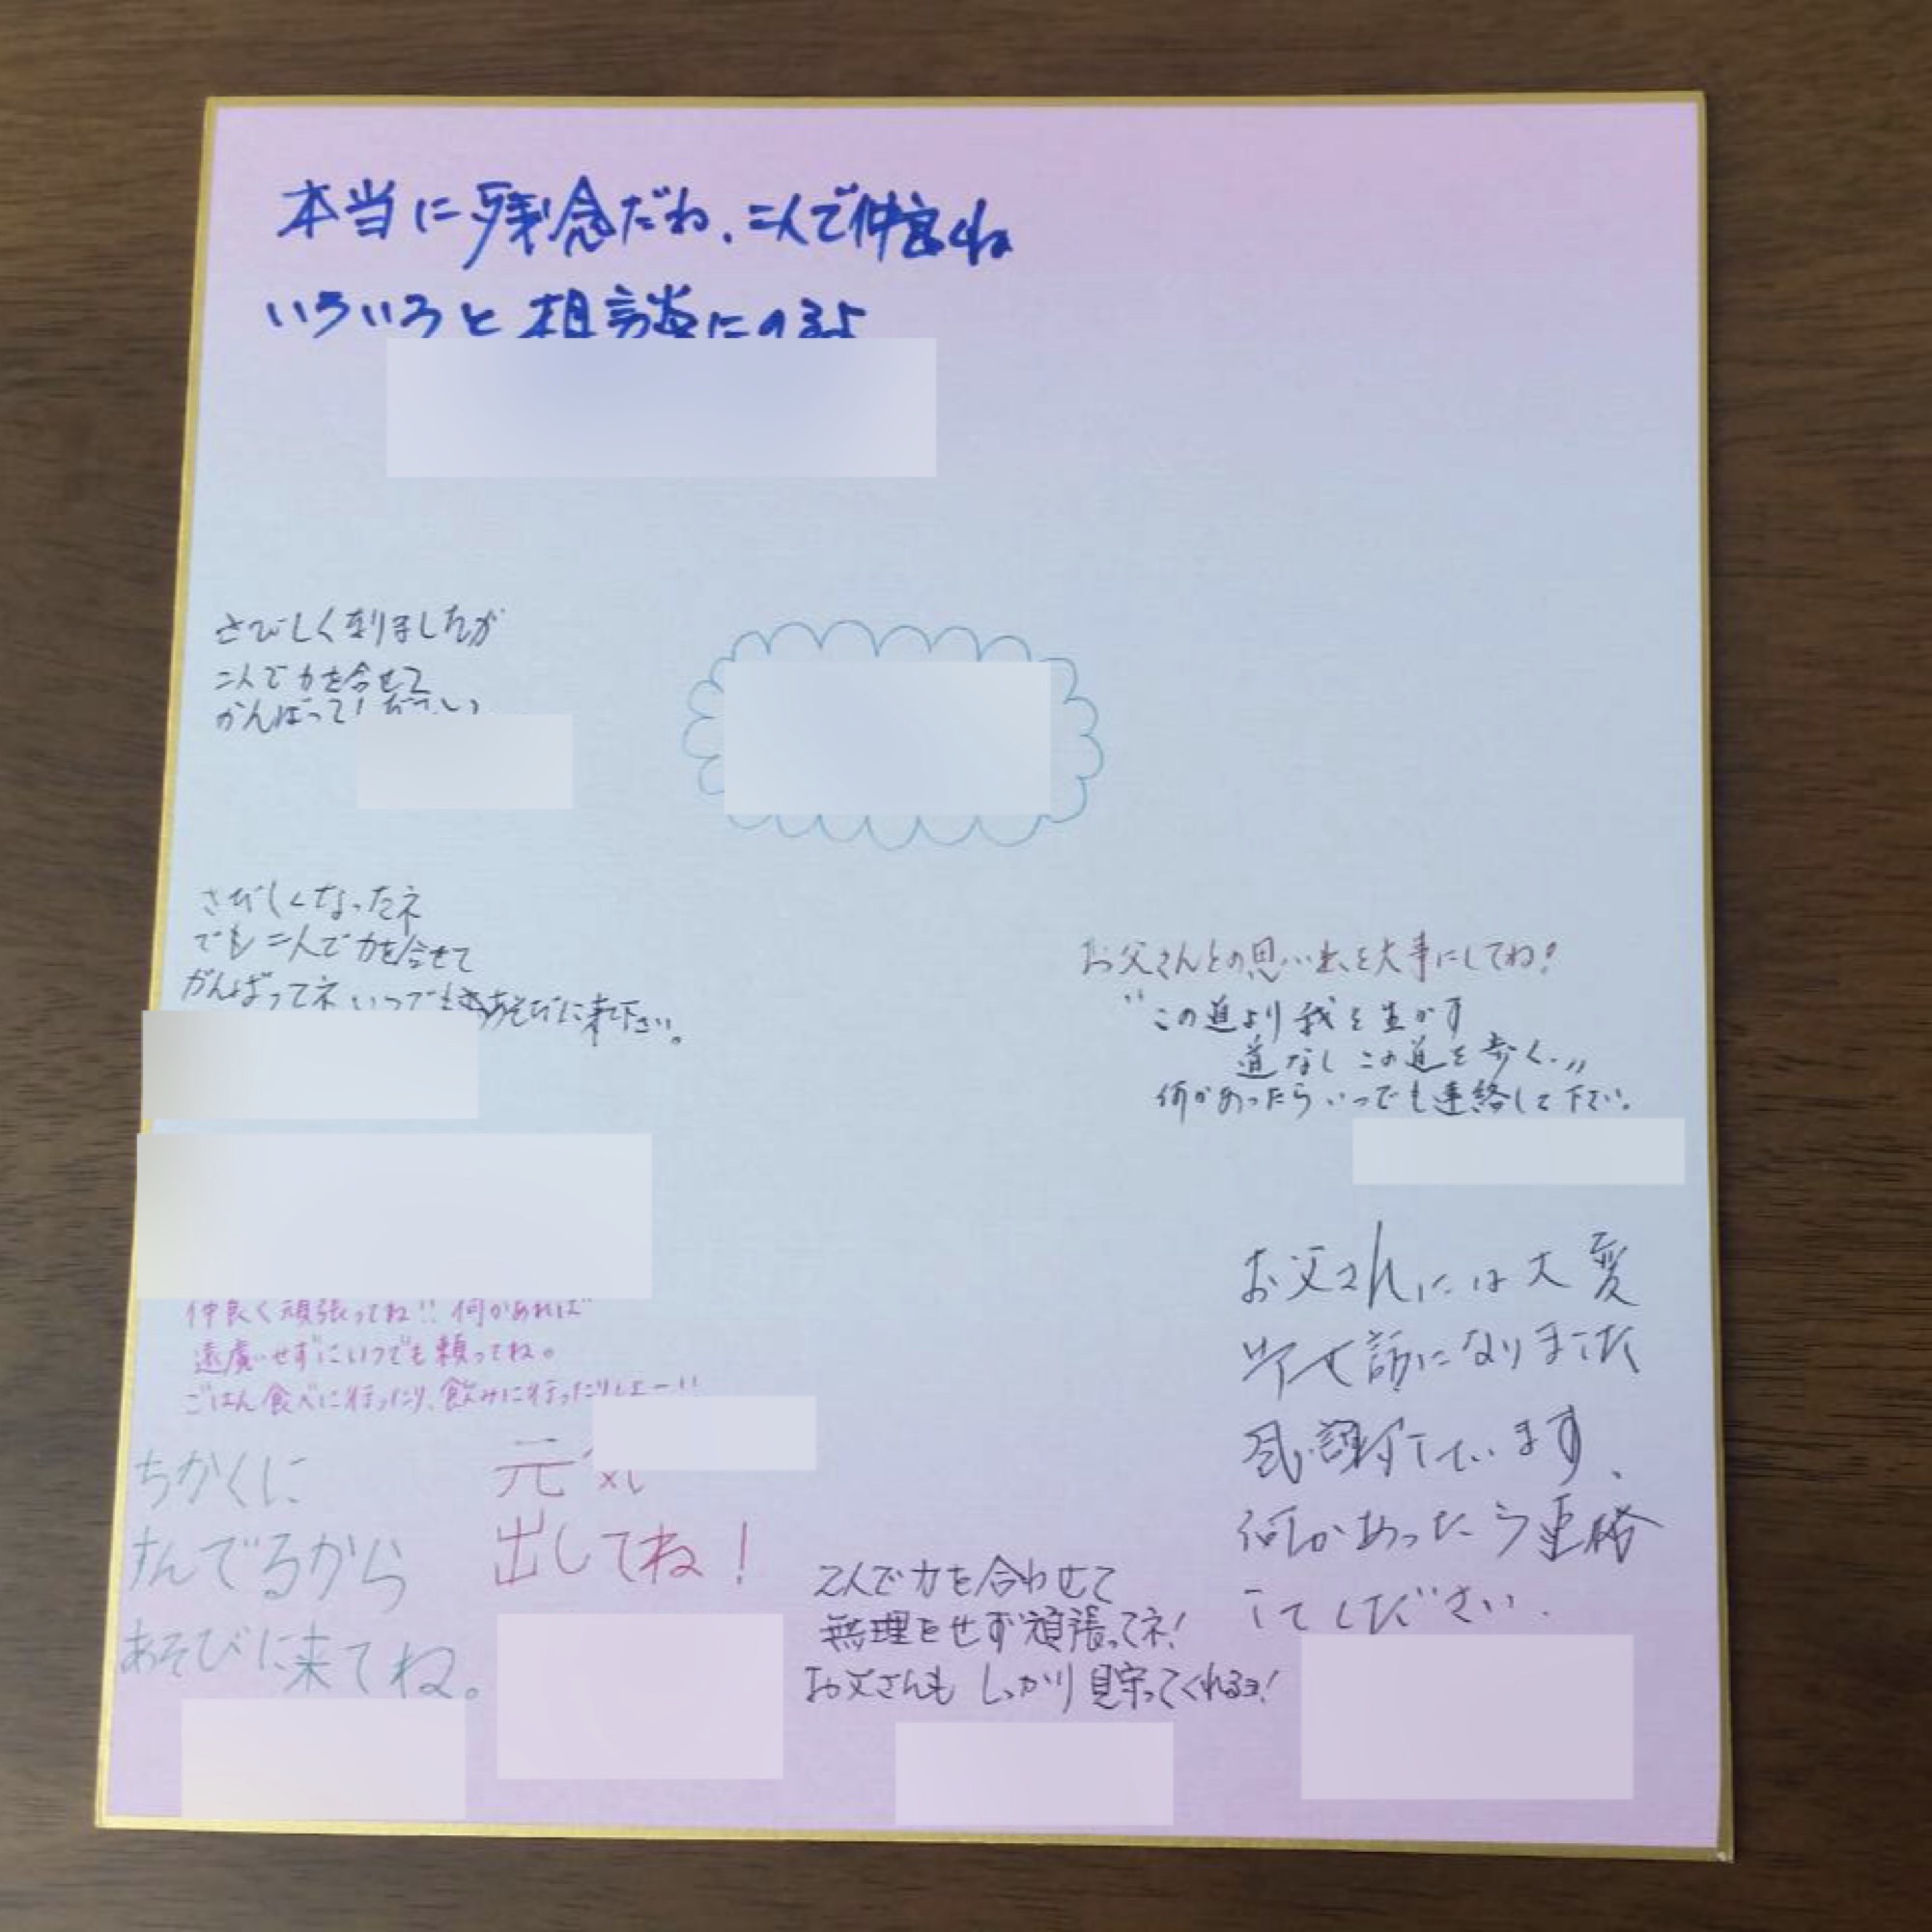 本当に残念だね、二人で仲良くね
いろいろと相談にのるよ
さびしく成りましたが
二人で力を合せて
がんばって下さい
さびしくなったネ
でも二人で力を合せて
がんばってネ いつでもあそびに来て下さい。
お父さんとの思い出を大事にしてね!
"この道より我を生かす
道なしこの道を歩く."
何かあったらいつでも連絡して下さい。
仲良く頑張ってね!! 何かあれば
遠慮せずにいつでも頼ってね。
ごはん食べに行ったり、飲みに行ったりしよー!!
ちかくに
すんでるから
あそびに来てね。
元気
出してね!
2人で力を合わせて
無理をせず頑張ってネ!
お父さんも しっかり見守ってくれるヨ!
お父さんには大変
お世話になりました
感謝しています、
何かあったら連絡
してください.